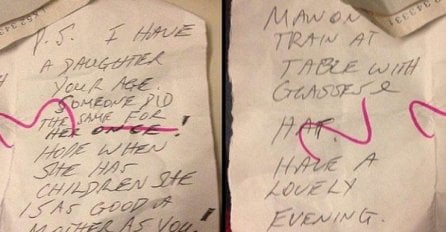 P.S. I HAVE
A DAUGHTER
YOUR AGE.
SOMEONE DID
THE SAME FOR
HER ONCE!
HOPE WHEN
SHE HAS
CHILDREN SHE
IS AS GOOD A
MOTHER AS YOU!
MAN ON
TRAIN AT
TABLE WITH
GLASSES &
HAT.
HAVE A
LOVELY
EVENING.